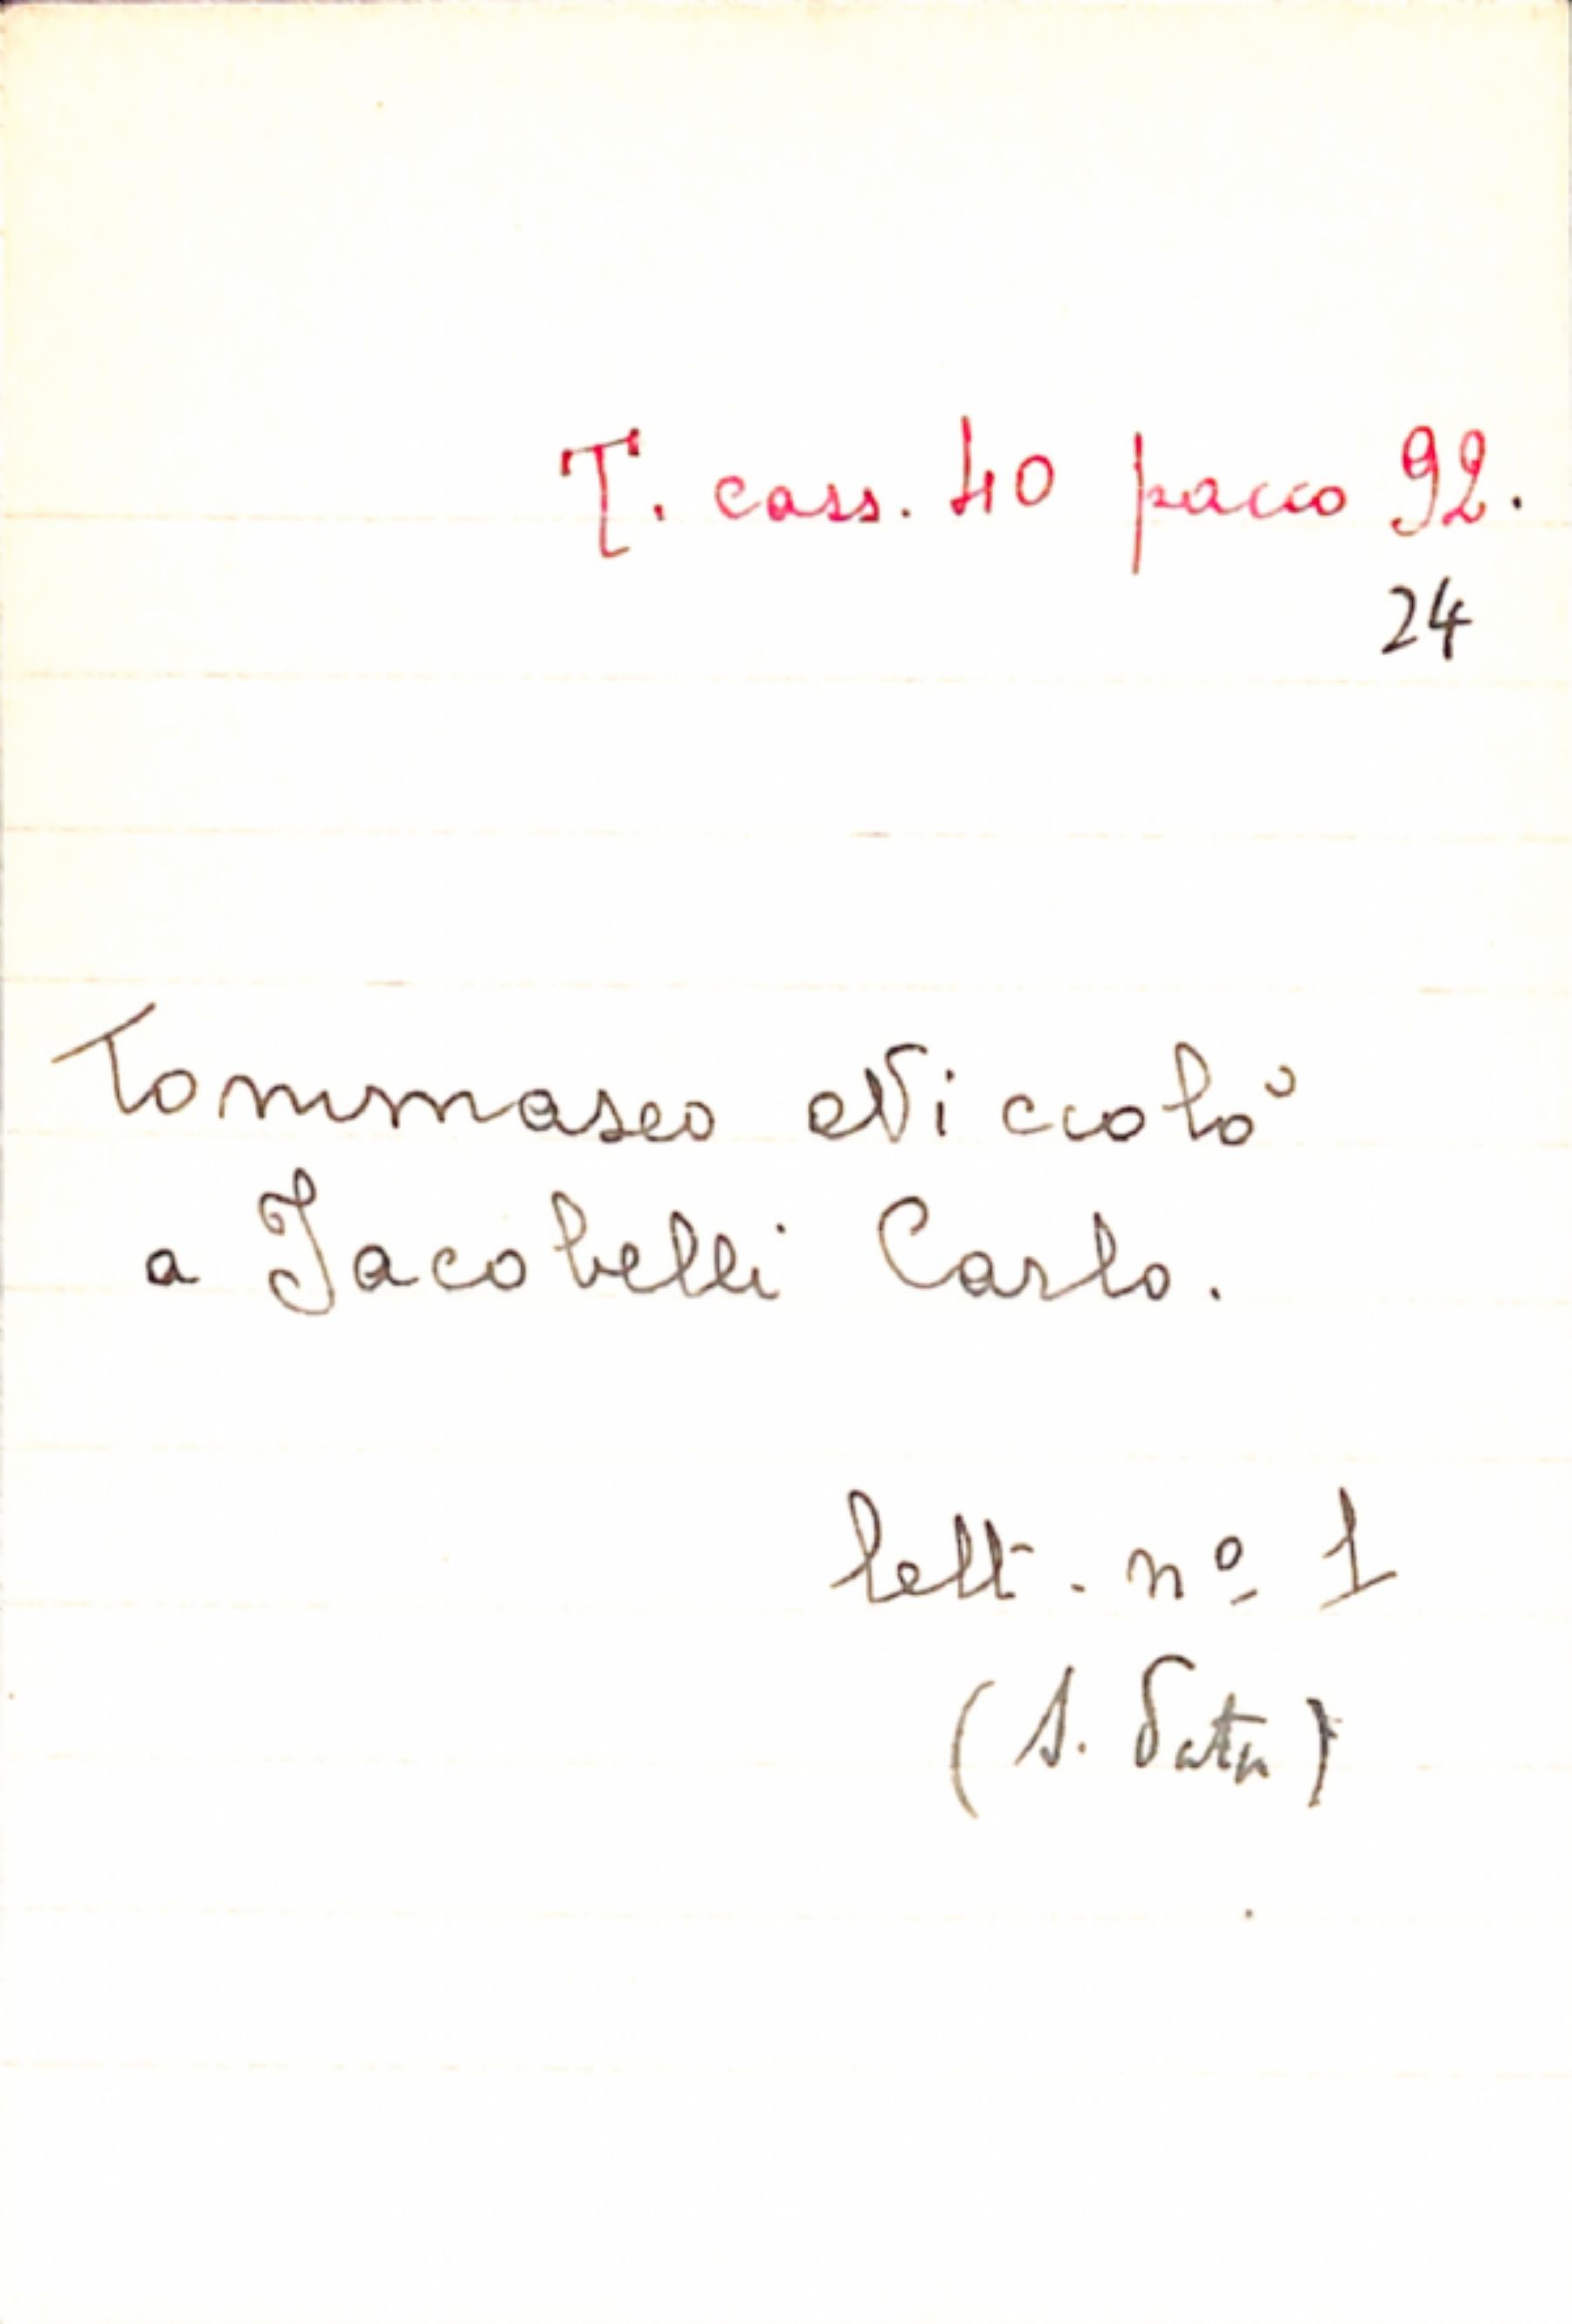 T. cass. 40 pacco 92.
24
Tommaseo Niccolò
a Jacobelli Carlo.
lett. nº 1
(s. data)